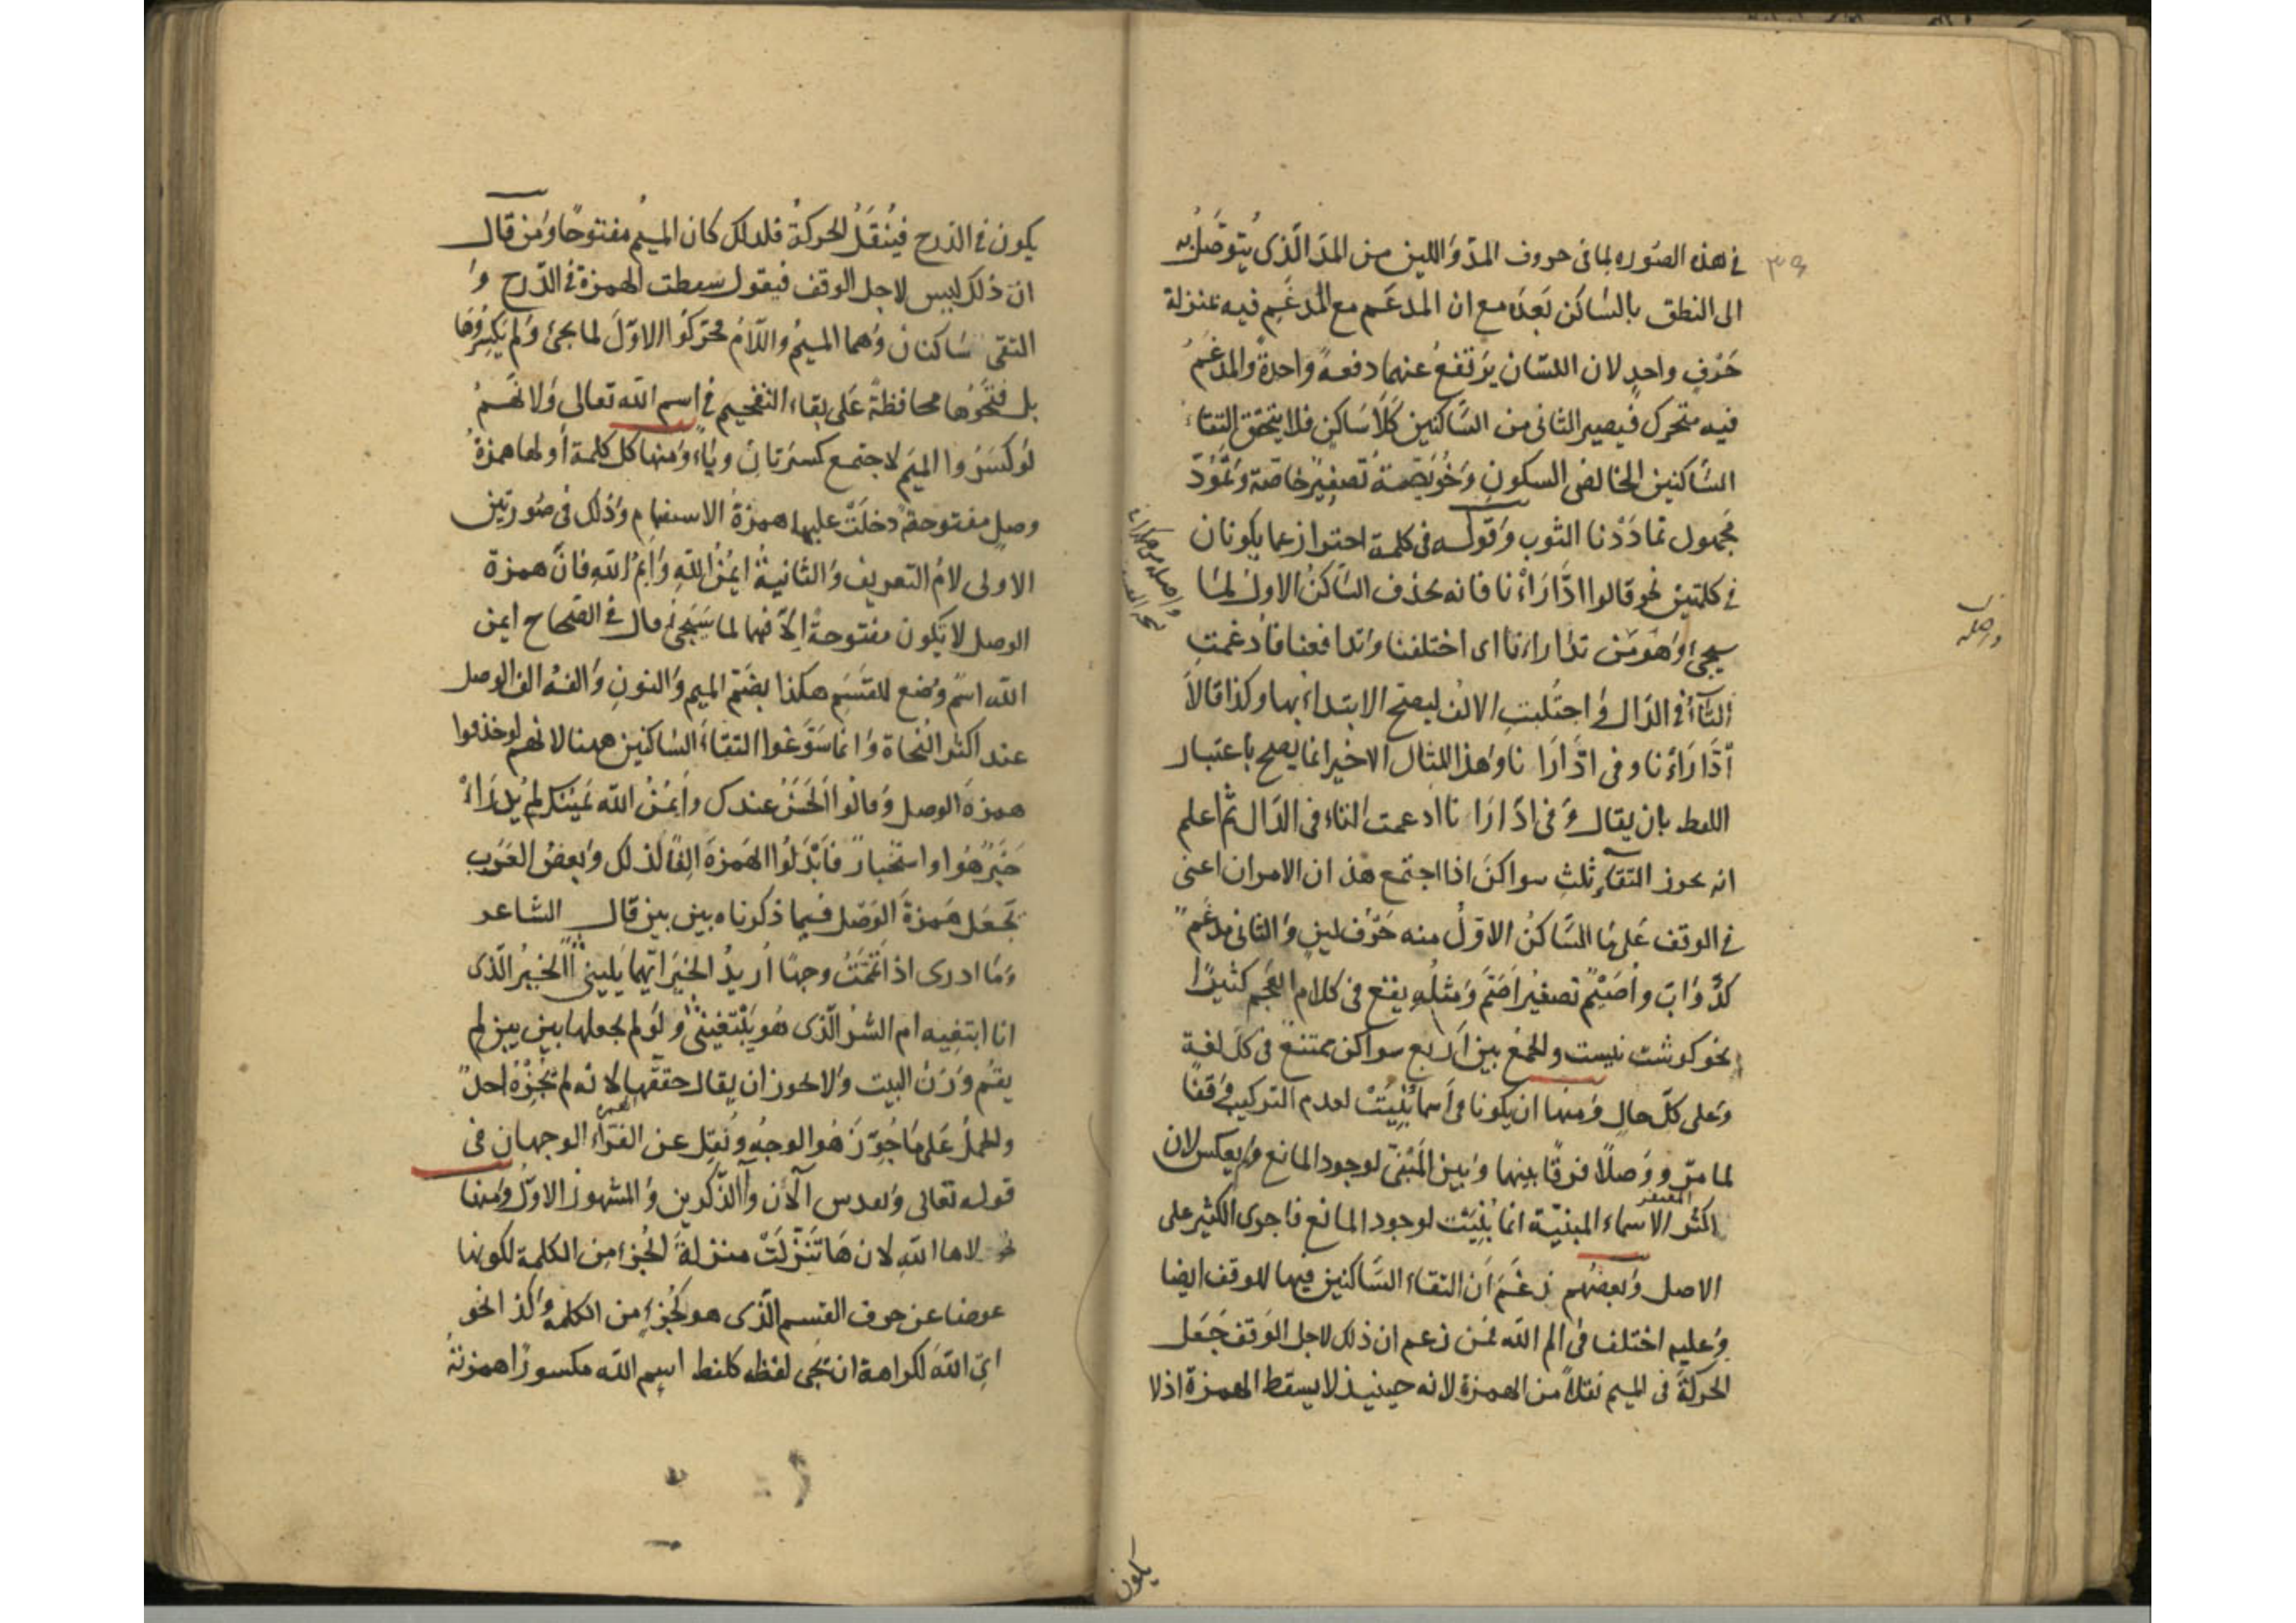 في هذه الصوره لما فى حروف المدّ وَاللين من المدّ الّذى يُتوصَّلُ به
الى النطق بالسَاكن بَعدَه مع ان المدغَم مع المُدغَمِ فيه بمنزلة
حَرْفٍ واحدٍ لان اللسَان يرتفعُ عنهما دفعةً وَاحدةً وَالمدغَمُ
فيه متحرك فيصير الثانى من السَّاكنين كَلَا سَاكنٍ فلا يتحقق التقاءُ
السَّاكنين الخالصى السكونِ وَخُوَيصَّةُ تصغيرُ خاصّة وَتُمُوُدّ
مجهول تمادَدْنا الثوب وَقولـه فى كلمة احتراز عما يكونان
فى كلتين نحو قالوا ادَّارَاْنا فانه يحذف السَّاكنُ الاولُ لما
سيجئ وَاهومن تدَاراءنا اى اختلفنا وَتدافعنا فادغمتِ
التَّاءُ فى الدَال وَ اجتُلبتِ الالفُ ليصحّ الابتداءُ بها وكذا قالَا
ادَّارَأنا وفى ادَّارَا نا وَهذا المثال الاخير انما يصح باعتبار
اللفظ بان يقال وَ فى ادَّارَا نا ادغمت التاء فى الدَال ثم اعلم
انه يجوز التقاء ثلثِ سواكنَ اذا اجتمع هذان الامران اعنى
فى الوقف عَلى مَا السَّاكنُ الاوّلُ منه حَرْف لينٍ وَالثانى مدغَمٌ
كدَوَابّ وأُصَيْمّ تصغيرُ اصَمّ وَمثلُه يقع فى كلام العَجَم كثيرًا
نحو كوشت نيست والجمعُ بين اَربع سواكن ممتنعٌ فى كلّ لغة
وَعلى كلّ حالٍ وَمنها ان يكونا فى أسماءٍ بُنِيَتْ لعدم التركيب وَقفًا
لما مرّ ووَصلًا فرقًا بينها وَبين المَبْنىّ لوجود المانع وَلم يعكس لان
اكثر الاسماء المبنيّة انما بُنِيَتْ لوجود المانع فاجرى الكثير على
الاصل وَبعضهم زعَمَ اَن التقاء السَّاكنين فيها للوقف ايضا
وَعليه اختلف فى الم اللّه فمَن زعم ان ذلك لاجل الوَقف جَعَل
الحركةَ فى الميم نقلًا من الهمزة لانه حينئذ لا يسقط الهمزة اذ لا
يكون
يكون فى الدّرج فيُنْقَلُ الحركةُ فلذلك كان الميمُ مفتوحًا وَمن قال
ان ذلك ليس لاجل الوقف فيقول سقطت الهمزة فى الدّرج وَ
التقى سَاكنان وَهما الميمُ وَاللّامُ فحرّكوا الاوّلَ لما يجئ وَلم يَكسِرُوهَا
بل فتحُوها محافظةً عَلى بقاء التفخيم فى اسم اللّه تعالى وَلانهَمْ
لوكسَرُوا الميَم لاجتمع كسرَتانِ وَياءٌ وَمنها كل كلمة أولها همزةُ
وصلٍ مفتوحةٌ دخلَتْ عليها همزةُ الاستفهامِ وَذلك فى صُورتين
الاولى لامُ التعريف وَالثانيةُ ايمُنُ اللّهِ وَايْمُ اللّهِ فانّ همزة
الوصل لا تكون مفتوحةً اِلّا فيهما لما سَيَجئ قال فى الصّحاح ايمن
اللّه اسمٌ وُضع للقسَمِ هكذا بضمّ الميم وَالنونِ وَالفُه الف الوصل
عند اكثر النُحاة وَانما سَوَّغوا التقاءَ السَّاكنين ههنا لانهم لو حذفوا
همزة الوصل وَقالوا الحَسَنُ عندك وَايمُنُ اللّه يَمينُك لم يُدْرَاَ
خبَرٌ هُوَ او استخبارٌ فاَبْدَلُوا الهَمزةَ الِفًا لذلك وَبعضُ العَرَب
تجعَل هَمزةَ الوَصْل فيما ذكرناه بين بين قال الشاعر
وَمَا ادرى اذا يَمَّمْتُ وجهًا اُريدُ الخيرَ ايّهما يَلينى أالخيرُ الّذى
انا ابتغِيه ام الشرُّ الّذى هُو يَبْتغينى وَلوَلم يجعلها بين بين لم
يقُم وَزنُ البيت وَلا يجوز ان يقال حقّقها لانه لم يُجِزْهُ احدٌ
والحملُ عَلى مَا جُوّزَ هُو الوجهُ وَنُقِل عن القرّاء الوجهان فى
قوله تعالى آلْأن وَآلذّكرين وَالمشهورُ الاوّلُ وَمنها
لاها اللّهِ لان هَا تنزّلَتْ منزلةَ الجُزءِ من الكلمة لكونها
عوضا عن حرف القسم الّذى هو كجُزءٍ من الكلمه وَكذا نحو
اىِ اللّهَ لكراهة ان يجى لفظه كلفظ اسِم اللّه مكسورًا همزتهُ